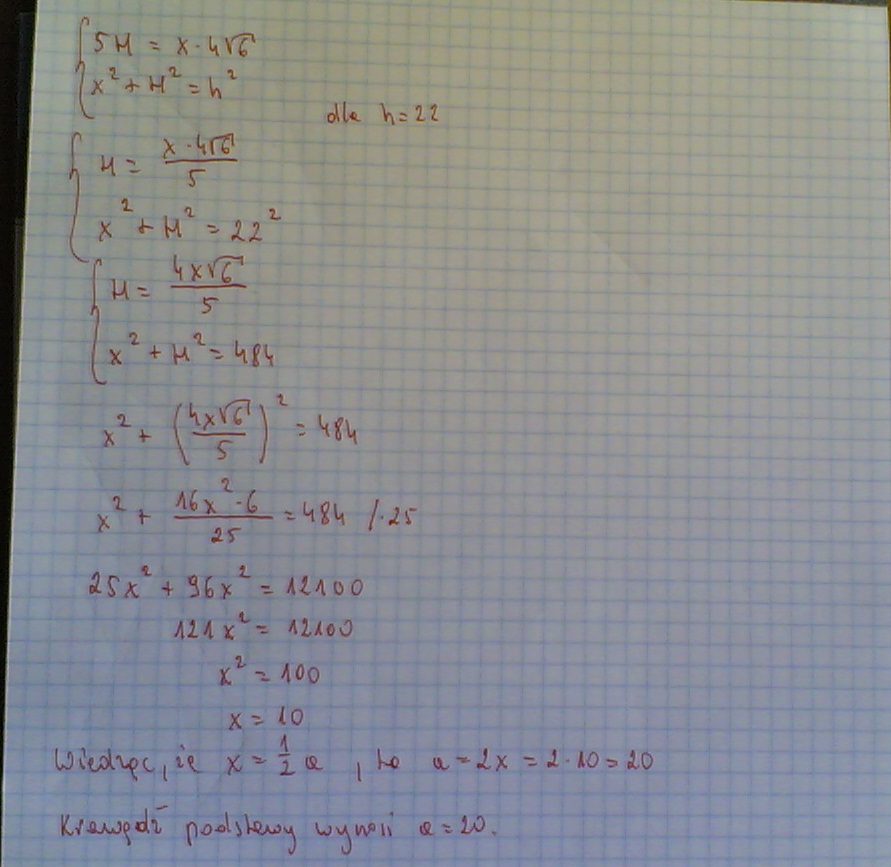 5H = x·4√6
x² + H² = h²
dla h=22
H = x·4√6 / 5
x² + H² = 22²
H = 4x√6 / 5
x² + H² = 484
x² + (4x√6 / 5)² = 484
x² + 16x²·6 / 25 = 484 /·25
25x² + 96x² = 12100
121x² = 12100
x² = 100
x = 10
Wiedząc, że x = 1/2 a , to a = 2x = 2·10 = 20
Krawędź podstawy wynosi a = 20.